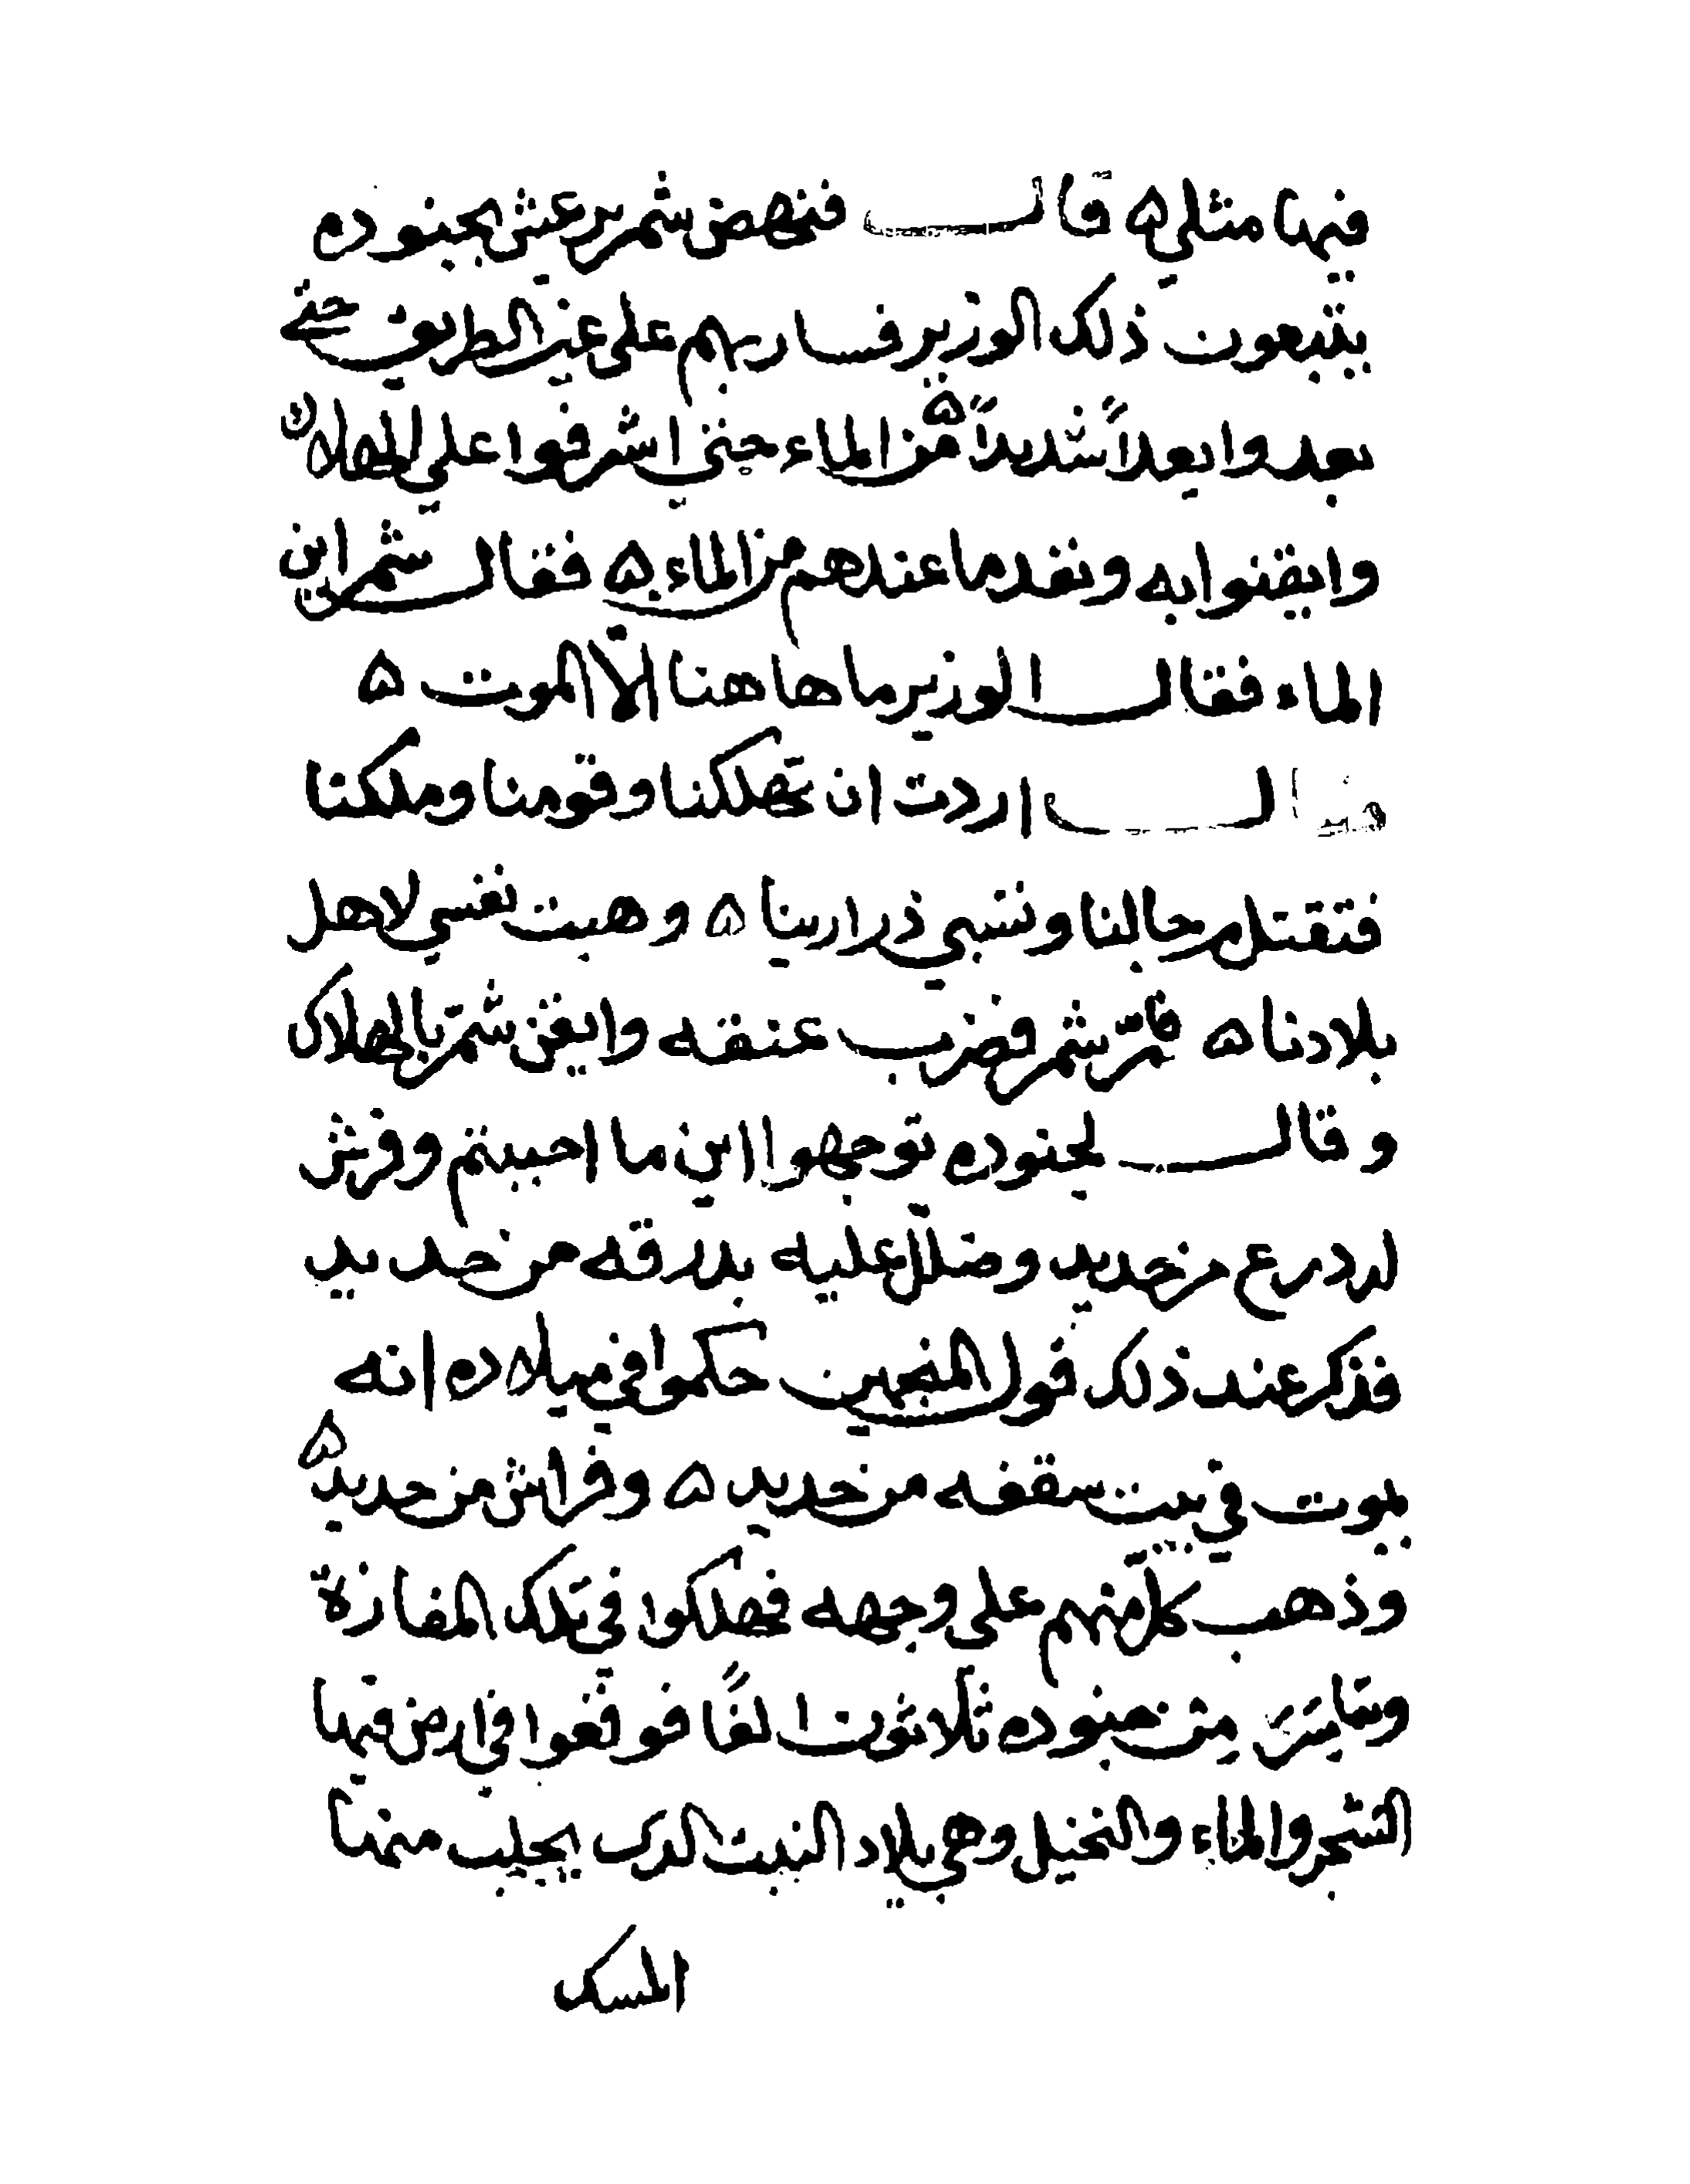 فيها مثلي ۵ قال فنهض شمر يرعش بجنوده
يتبعون ذلك الوزير فسار بهم على غير الطريق حتى
بعدوا بعداً شديداً ۵ من الماء حتى اشرفوا علي الهلاك
وايقنوا به ونفد ما عندهم من الماء ۵ فقال شمر اين
الماء فقال الوزير ما هاهنا الا الموت ۵
قال اردت ان تهلكنا وقومنا وملكنا
فتقتل رجالنا وتسبي ذرارينا ۵ وهبت نفسي لاهل
بلادنا ۵ فامر شمر فضرب عنقه وايقن شمر بالهلاك
وقال لجنوده توجهوا اين ما احببتم وفرش
له درع من حديد وضلل عليه بدرقه من حديد
فذكر عند ذلك قول المنجمين حكموا في ميلاده انه
يموت في بيت سقفه من حديد ۵ وفراش من حديد ۵
وذهب كل منهم على وجهه فهلكوا في تلك المفازة
وسار من جنوده ثلاثون الفًا فوقعوا في ارض فيها
الشجر والماء والنخيل وهي بلاد التبت الذي يجلب منها
المسك